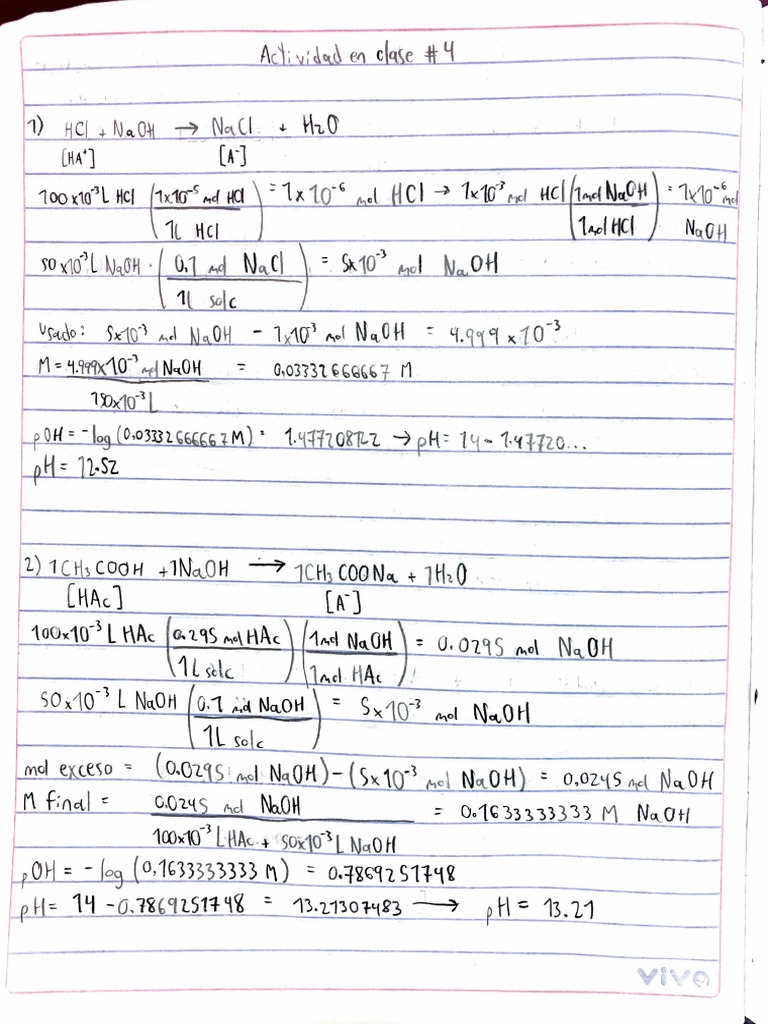 Actividad en clase #4
1) HCl + NaOH → NaCl + H2O
[HA⁺] [A⁻]
100x10⁻³ L HCl (1x10⁻⁵ mol HCl / 1L HCl) = 1x10⁻⁶ mol HCl → 1x10⁻³ mol HCl (1mol NaOH / 1mol HCl) = 1x10⁻⁶ mol NaOH
50x10⁻³ L NaOH · (0.1 mol NaCl / 1L solc) = 5x10⁻³ mol NaOH
Usado: 5x10⁻³ mol NaOH - 1x10⁻³ mol NaOH = 4.999 x 10⁻³
M = 4.999x10⁻³ mol NaOH / 150x10⁻³ L = 0,03332666667 M
pOH = -log (0.03332666667 M) = 1.477208122 → pH = 14 - 1.47720...
pH = 12.52
2) 1CH3COOH + 1NaOH → 1CH3COONa + 1H2O
[HAc] [A⁻]
100x10⁻³ L HAc (0.295 mol HAc / 1L solc) (1mol NaOH / 1mol HAc) = 0.0295 mol NaOH
50x10⁻³ L NaOH (0.1 mol NaOH / 1L solc) = 5x10⁻³ mol NaOH
mol exceso = (0.0295 mol NaOH) - (5x10⁻³ mol NaOH) = 0,0245 mol NaOH
M final = 0.0245 mol NaOH / 100x10⁻³ L HAc + 50x10⁻³ L NaOH = 0.1633333333 M NaOH
pOH = -log (0,1633333333 M) = 0.7869251748
pH = 14 - 0.7869251748 = 13.21307483 → pH = 13.21
vivo